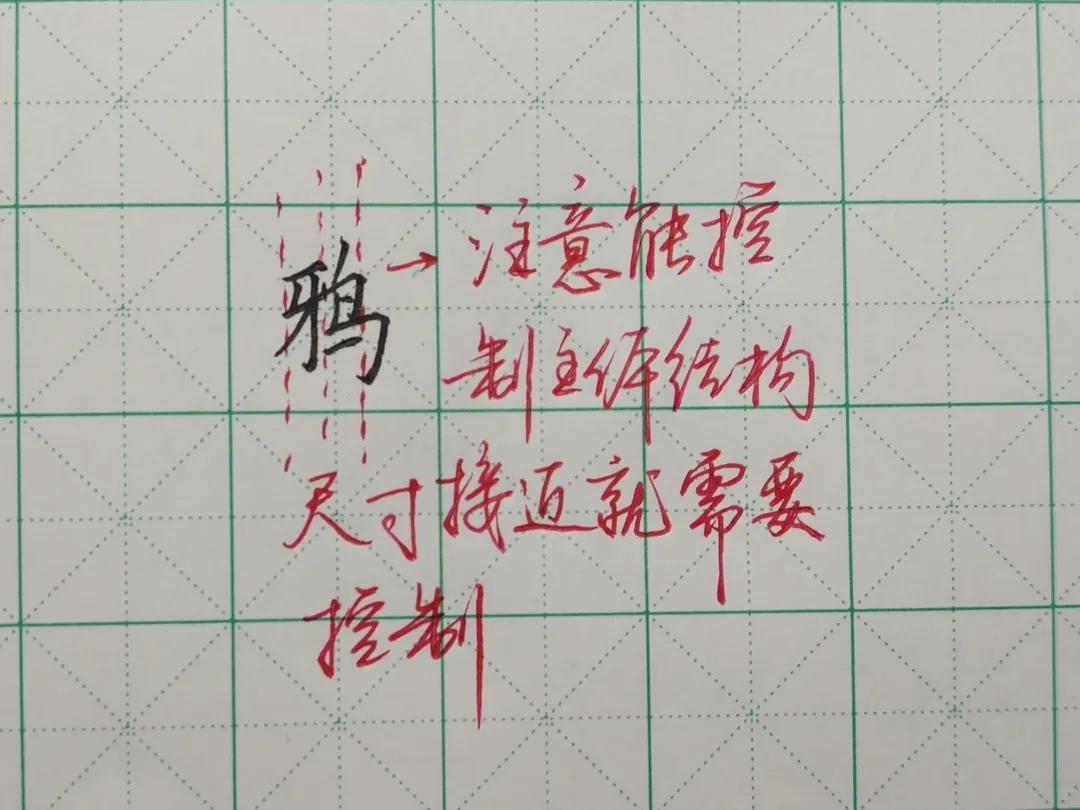 鸦→注意能控
制主体结构
尺寸接近就需要
控制